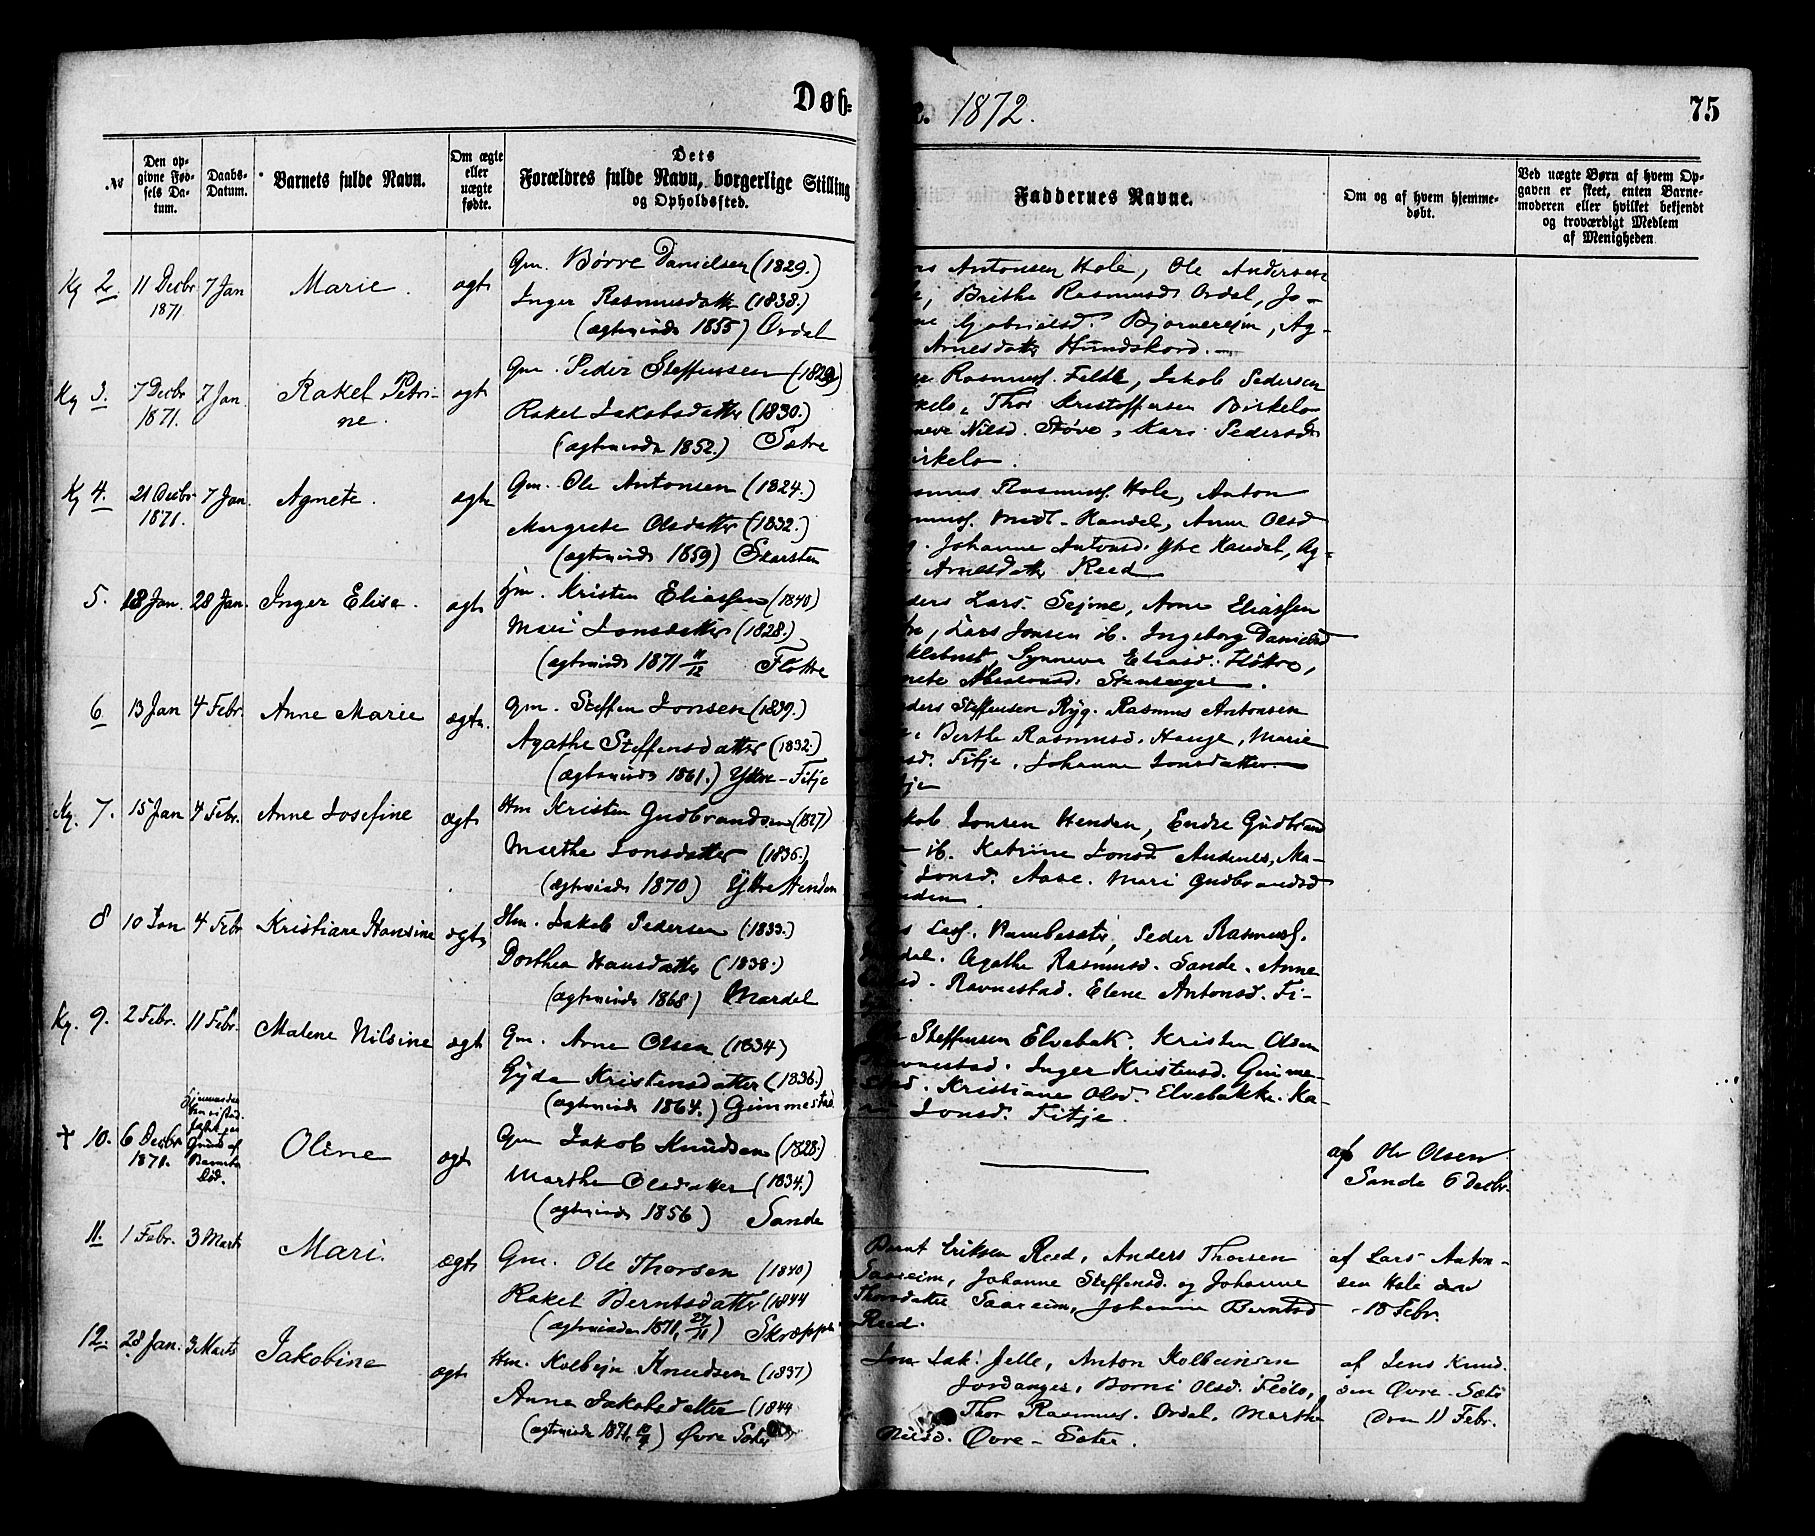 Døb-
e. 1872.
75
№
Den op-
givne Fød-
sels Da-
tum.
Daabs-
Datum.
Barnets fulde Navn.
Om ægte
eller
uægte
fødte.
Dets
Forældres fulde Navn, borgerlige Stilling
og Opholdssted.
Faddernes Navne.
Om og af hvem hjemme-
døbt.
Ved uægte Børn af hvem Op-
gaven er skeet, enten Barne-
moderen eller hvilket bekjendt
og troværdigt Medlem
af Menigheden
Kg 2. 11 Decbr 7 Jan Marie. ægte Gm. Børre Danielsen (1829.)
1871
Inger Rasmusdatter (1838.)
(ægteviede 1855) Ordal
Antonsen Hole, Ole Andersen
Brithe Rasmusd. Ordal, Jo-
Gabrielsd. Bjørnereim, Ag-
Arnesdatter Hundskord.
Kg 3. 7 Decbr 7 Jan. Rakel Petri- ægte Gm. Peder Steffensen (1829)
1871. ne.
Rakel Jakobsdatter (1830.)
(ægteviede 1852.) Sætre
Rasmuss. Felde, Jakob Pedersen
Thor Kristoffersen Birkelo
Nilsd. Støve, Kari Pedersd
irkelo.
Kg 4. 21 Decbr 7 Jan. Agnete. ægte Gm. Ole Antonsen (1824.)
1871.
Margrete Olsdatter (1832.)
(ægteviede 1859) Skarsten
Rasmuss. Hole, Anton
Midt-Kandal, Anne Olsd
Johanne Antonsd. Ytre Kandal, Ag-
Arnesdatter Reed
5. 18 Jan. 28 Jan. Inger Elise. ægte Hm. Kristen Eliassen (1840)
Mari Jonsdatter (1828.)
(ægteviede 1871 11/12 Flotre
ders Lars. Sejme, Arne Eliassen
Lars Jonsen ib. Ingeborg Danielsd
Synneve Eliasd. Fløtre,
6 13 Jan 4 Febr. Anne Marie ægte. Gm. Steffen Jonsen (1839.)
Agathe Steffensdatter (1832.)
(ægteviede 1861.) Ytre-Fitje
ders Steffensen Ryg. Rasmus Antonsen
Berthe Rasmusd. Hauge, Marie
Fitje. Johanne Jonsdatter
tje
Kg. 7. 15 Jan 4 Febr. Anne Josefine ægte Hm Kristen Gudbrandsen (1827)
Marthe Jonsdatter (1835)
(ægteviede 1870) Ytre Henden
kob Jonsen Henden, Endre Gudbrand
ib. Katrine Jonsd. Andenes, Ma-
Jonsd. Aase. Mari Gudbrandsd
nden.
8 10 Jan 4 Febr Kristiane Hansine ægte Hm. Jakob Pedersen (1833.)
Dorthea Hansdatter (1838.)
(ægteviede 1868) Mardal
Peder Rasmuss.
dal. Agathe Rasmusd. Sande. Anne
Ravnestad. Elene Antonsd. Fi-
Kg. 9. 2 Febr. 11 Febr. Malene Nilsine ægte Gm. Arne Olsen (1834)
Gyda Kristensdatter (1836.)
(ægteviede 1864.) Gimmestad
Steffensen Elvebak. Kristen Olsen
avnestad. Inger Kristensd. Gimme-
stad. Kristiane Olsd. Elvebakke. Ka-
Jonsd. Fitje.
† 10. 6 Decbr Olene ægte Gm Jakob Knudsen (1828.)
1871.
Grund af
Barnets
Død.
Marthe Olsdatter (1834.)
(ægteviede 1856) Sande
af Ole Olsen
Sande 6 Decbr.
11. 1 Febr. 3 Marts Mari. ægte Gm. Ole Thorsen (1840)
Rakel Berntsdatter (1844
(ægteviede 1871, 27/11) Skreppe
Bernt Eriksen Reed, Anders Thorsen
Saareim, Johanne Steffensd. og Johanne
Thorsdatter Saareim, Johanne Berntsd
Reed.
af Lars Anton-
sen Hole den
18 Febr.
12. 28 Jan. 3 Marts Jakobine ægte Hm. Kolbejn Knudsen (1837)
Anna Jakobsdatter (1844
(ægteviede 1871) Øvre Sæter
Jelle, Anton Kolbeinsen
Jordanger, Borni Olsd. Fløto,
Thor Rasmus. Ordal. Marthe
Nilsd. Øvre-Sæter.
af Jens Knud-
sen Øvre-Sæte
den 11 Febr.